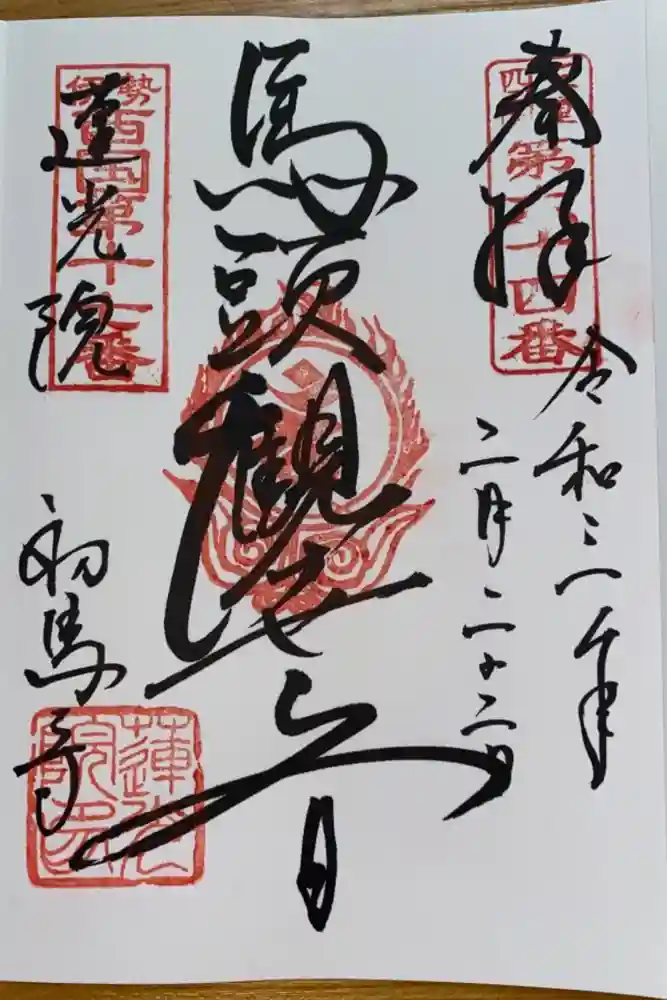 奉拝
三重四国第六十四番
令和三年
二月二十二日
馬頭觀世音
伊勢西国第十七番
蓮光院
初馬寺
蓮光院印